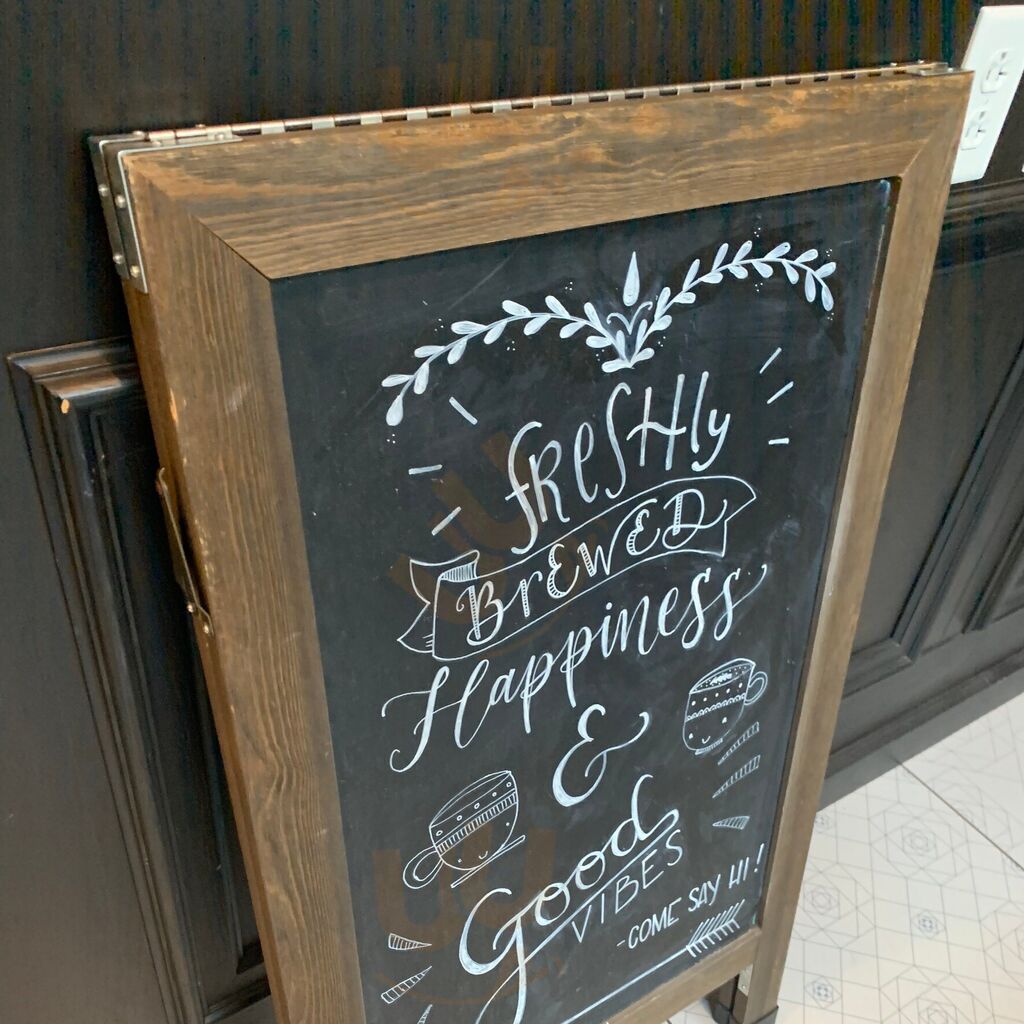 fRESHly
BrEWED
Happiness
&
Good
VIBES
-COME SAY HI!